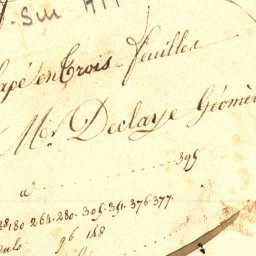 . Sur
apé en Trois feuilles
Mr. Declaye Géomè
a ........................ 395
180 264. 280. 305. 341. 376. 377.
96 148